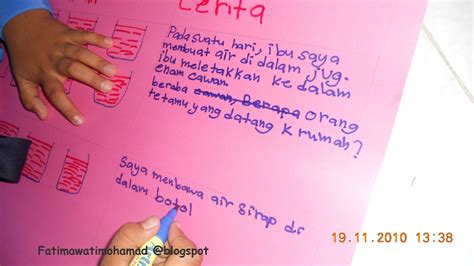 Cerita
Pada suatu hari, ibu saya
membuat air di dalam jug.
ibu meletakkan ke dalam
enam cawan.
beraba cawan, Berapa orang
tetamu yang datang K rumah?
Saya menbawa air sirap di
dalam botol
Fatimawatimohamad @blogspot
19.11.2010 13:38